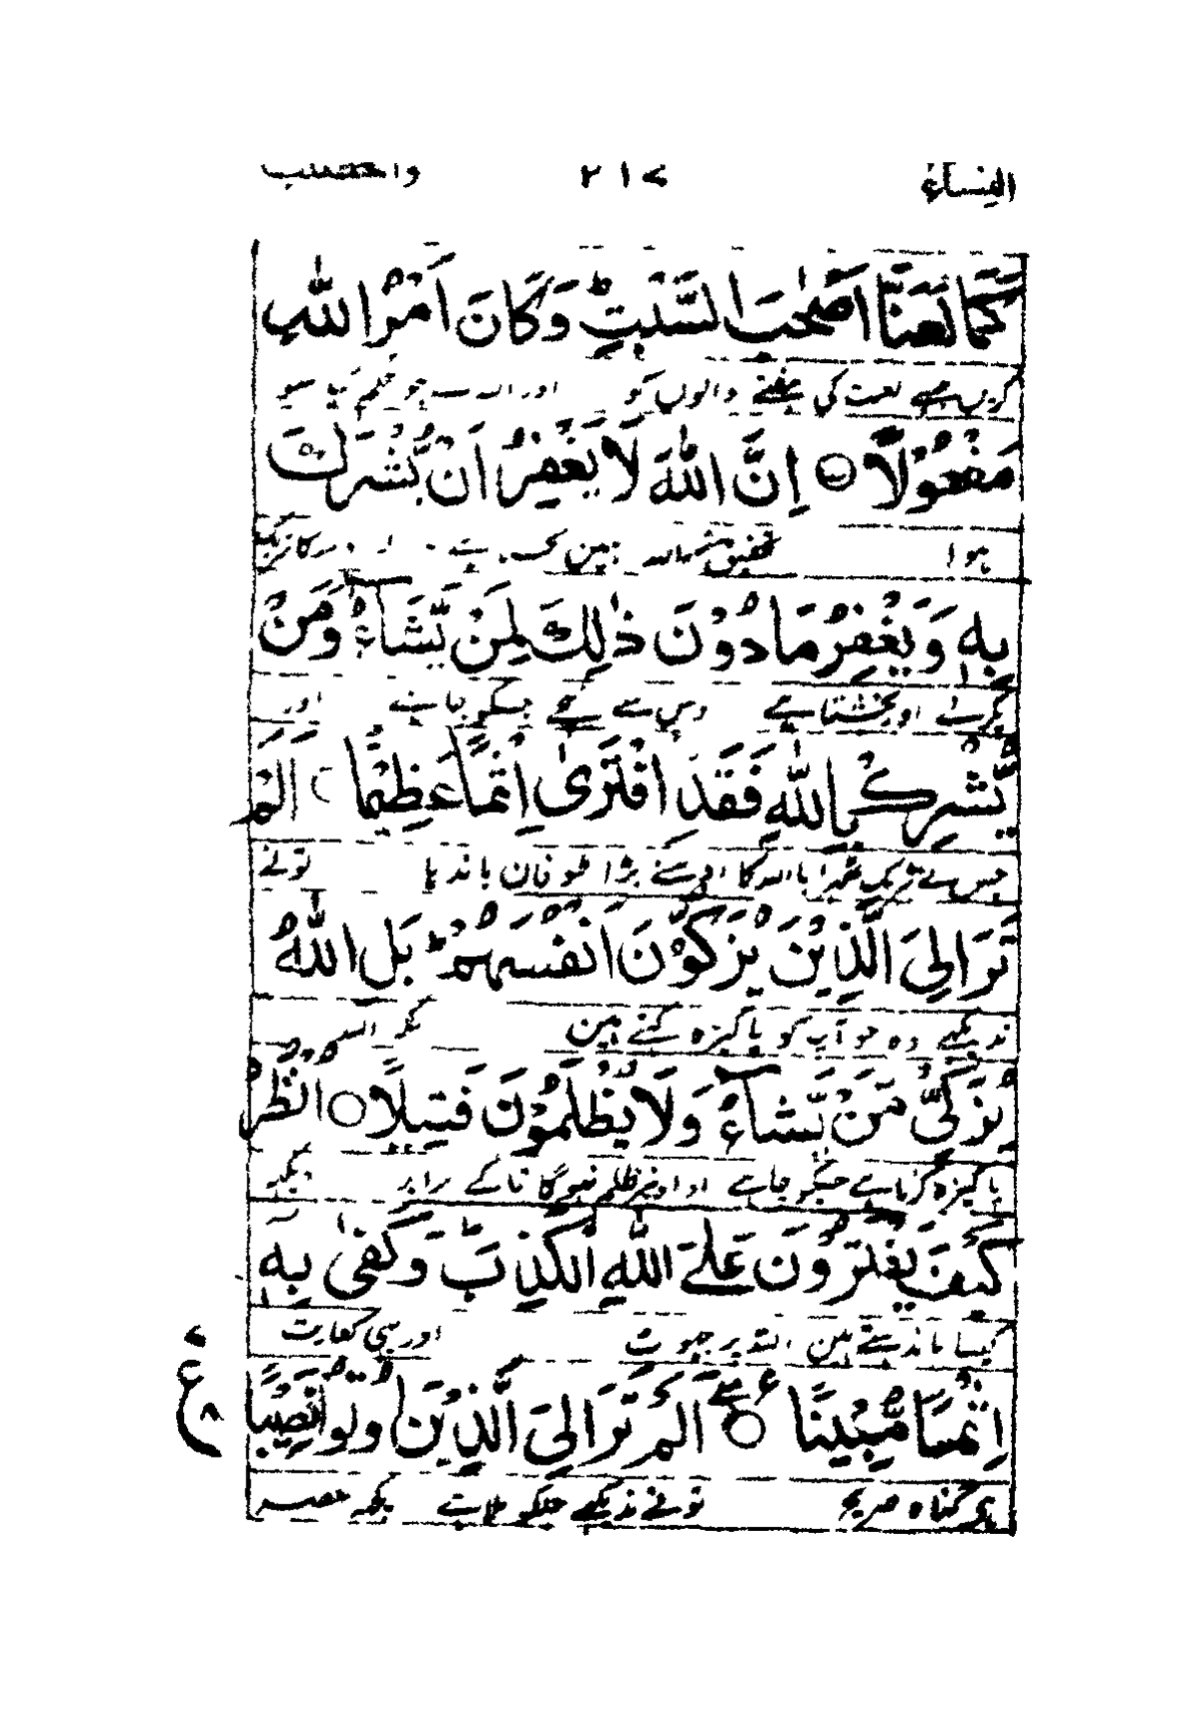 النساء ٢١٧ والمحصنت
كَمَا لَعَنَّا اَصْحٰبَ السَّبْتِ ؕ وَكَانَ اَمْرُ اللّٰهِ
کریں جیسے لعنت کی ہفتے والوں کو اور اللہ نے جو حکم کیا سو
مَفْعُوْلًا ○ اِنَّ اللّٰهَ لَا يَغْفِرُ اَنْ يُّشْرَكَ
ہوا تحقیق اللہ نہین
بِهٖ وَيَغْفِرُ مَا دُوْنَ ذٰلِكَ لِمَنْ يَّشَآءُ ۚ وَمَنْ
اور بخشتا ہے اس سے نیچے جسکو چاہے اور
يُّشْرِكْ بِاللّٰهِ فَقَدِ افْتَرٰٓى اِثْمًا عَظِيْمًا ○ اَلَمْ
جس نے شریک ٹھہرایا اللہ کا اس نے بڑا طوفان باندھا تونے
تَرَ اِلَى الَّذِيْنَ يُزَكُّوْنَ اَنْفُسَهُمْ ؕ بَلِ اللّٰهُ
ندیکھے وہ جو آپ کو پاکیزہ کہتے ہین بلکہ اللہ
يُزَكِّيْ مَنْ يَّشَآءُ وَلَا يُظْلَمُوْنَ فَتِيْلًا ○ اُنْظُرْ
پاکیزہ کرتا ہے جسکو چاہے اور اونپر ظلم نہوگا تاگے برابر دیکھ
كَيْفَ يَفْتَرُوْنَ عَلَى اللّٰهِ الْكَذِبَ ؕ وَكَفٰى بِهٖٓ
کیسا باندھتے ہین اللہ پر جھوٹ اور یہی کفایت
اِثْمًا مُّبِيْنًا ○ ع اَلَمْ تَرَ اِلَى الَّذِيْنَ اُوْتُوْا نَصِيْبًا
ع ٨
گناہ صریح تونے ندیکھے جنکو ملا ہے کچھ حصہ